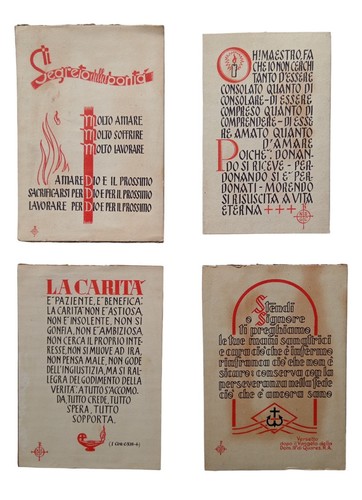 Il
Segreto della bontà
Molto amare
Molto soffrire
Molto lavorare
Amare Dio e il prossimo
Sacrificarsi per Dio e per il prossimo
Lavorare per Dio e per il prossimo
OH! MAESTRO, FA
CHE IO NON CERCHI
TANTO D'ESSERE
CONSOLATO QUANTO DI
CONSOLARE - DI ESSERE
COMPRESO QUANTO DI
COMPRENDERE - DI ESSE
RE AMATO QUANTO
D'AMARE
POICHE': DONAN
DO SI RICEVE - PER
DONANDO SI E' PER
DONATI - MORENDO
SI RISUSCITA A VITA
ETERNA +++
LA CARITÀ
E' PAZIENTE, E' BENEFICA:
LA CARITÀ NON È ASTIOSA,
NON È INSOLENTE, NON SI
GONFIA, NON È AMBIZIOSA,
NON CERCA IL PROPRIO INTE-
RESSE, NON SI MUOVE AD IRA,
NON PENSA MALE, NON GODE
DELL'INGIUSTIZIA, MA SI RAL-
LEGRA DEL GODIMENTO DELLA
VERITÀ: A TUTTO S'ACCOMO-
DA, TUTTO CREDE, TUTTO
SPERA, TUTTO
SOPPORTA.
Stendi
o Signore
ti preghiamo
le tue mani sananti
e cura ciò che è infermo
rinfranca ciò che è mal
sicuro: conserva con la
perseveranza nella fede
ciò che è ancora sano
Versetto
dopo il Vangelo della